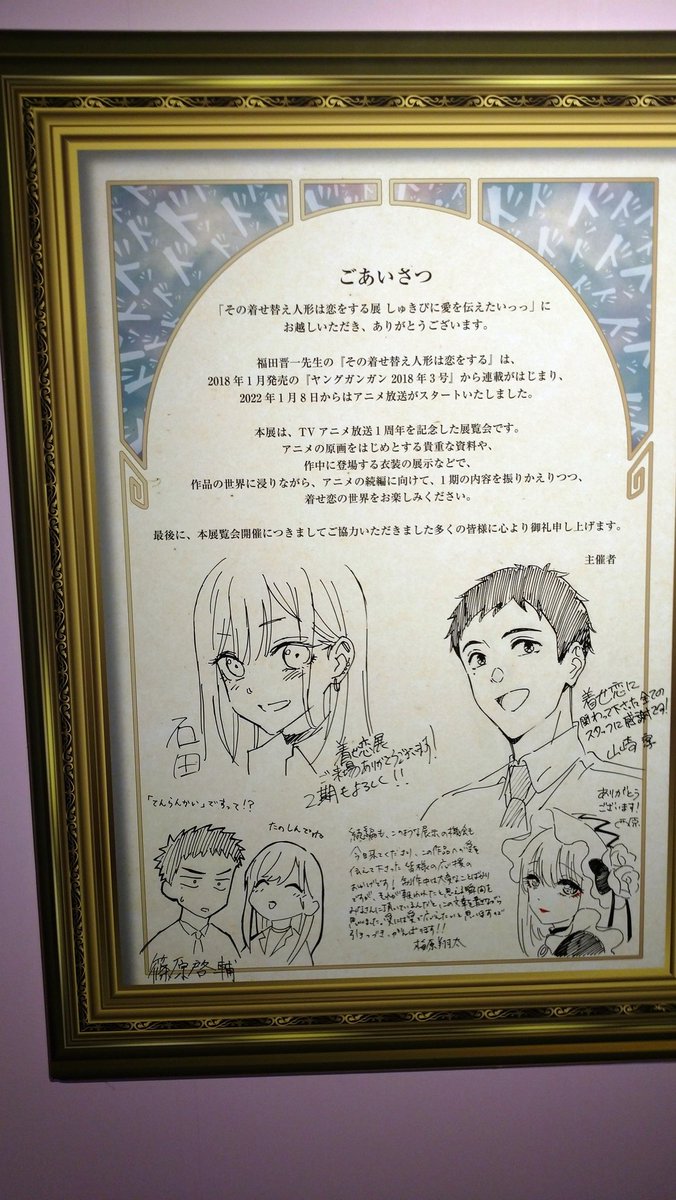 ごあいさつ
「その着せ替え人形は恋をする展 しゅきぴに愛を伝えたいっっ」に
お越しいただき、ありがとうございます。
福田晋一先生の『その着せ替え人形は恋をする』は、
2018年1月発売の『ヤングガンガン2018年3号』から連載がはじまり、
2022年1月8日からはアニメ放送がスタートいたしました。
本展は、TVアニメ放送1周年を記念した展覧会です。
アニメの原画をはじめとする貴重な資料や、
作中に登場する衣装の展示などで、
作品の世界に浸りながら、アニメの続編に向けて、1期の内容を振りかえりつつ、
着せ恋の世界をお楽しみください。
最後に、本展覧会開催につきましてご協力いただきました多くの皆様に心より御礼申し上げます。
主催者
石田
着せ恋展
ご来場ありがとうございます!
2期もよろしく!!
着せ恋に
関わって下さった全ての
スタッフに感謝です!
山崎淳
「てんらんかい」ですって!?
たのしんでね
篠原啓輔
続編も、このような展示の機会も
今日来てくださり、この作品へ愛を
伝えて下さった皆様の応援の
おかげです!制作中は大変なことばかり
ですが、それが報われたと思える瞬間を
みなさんに頂いているんだと、この文章を書きながら
思いました。愛には愛で応えたいと思いますので
引きつづき、がんばります!!
梅原翔太
ありがとう
ございます!